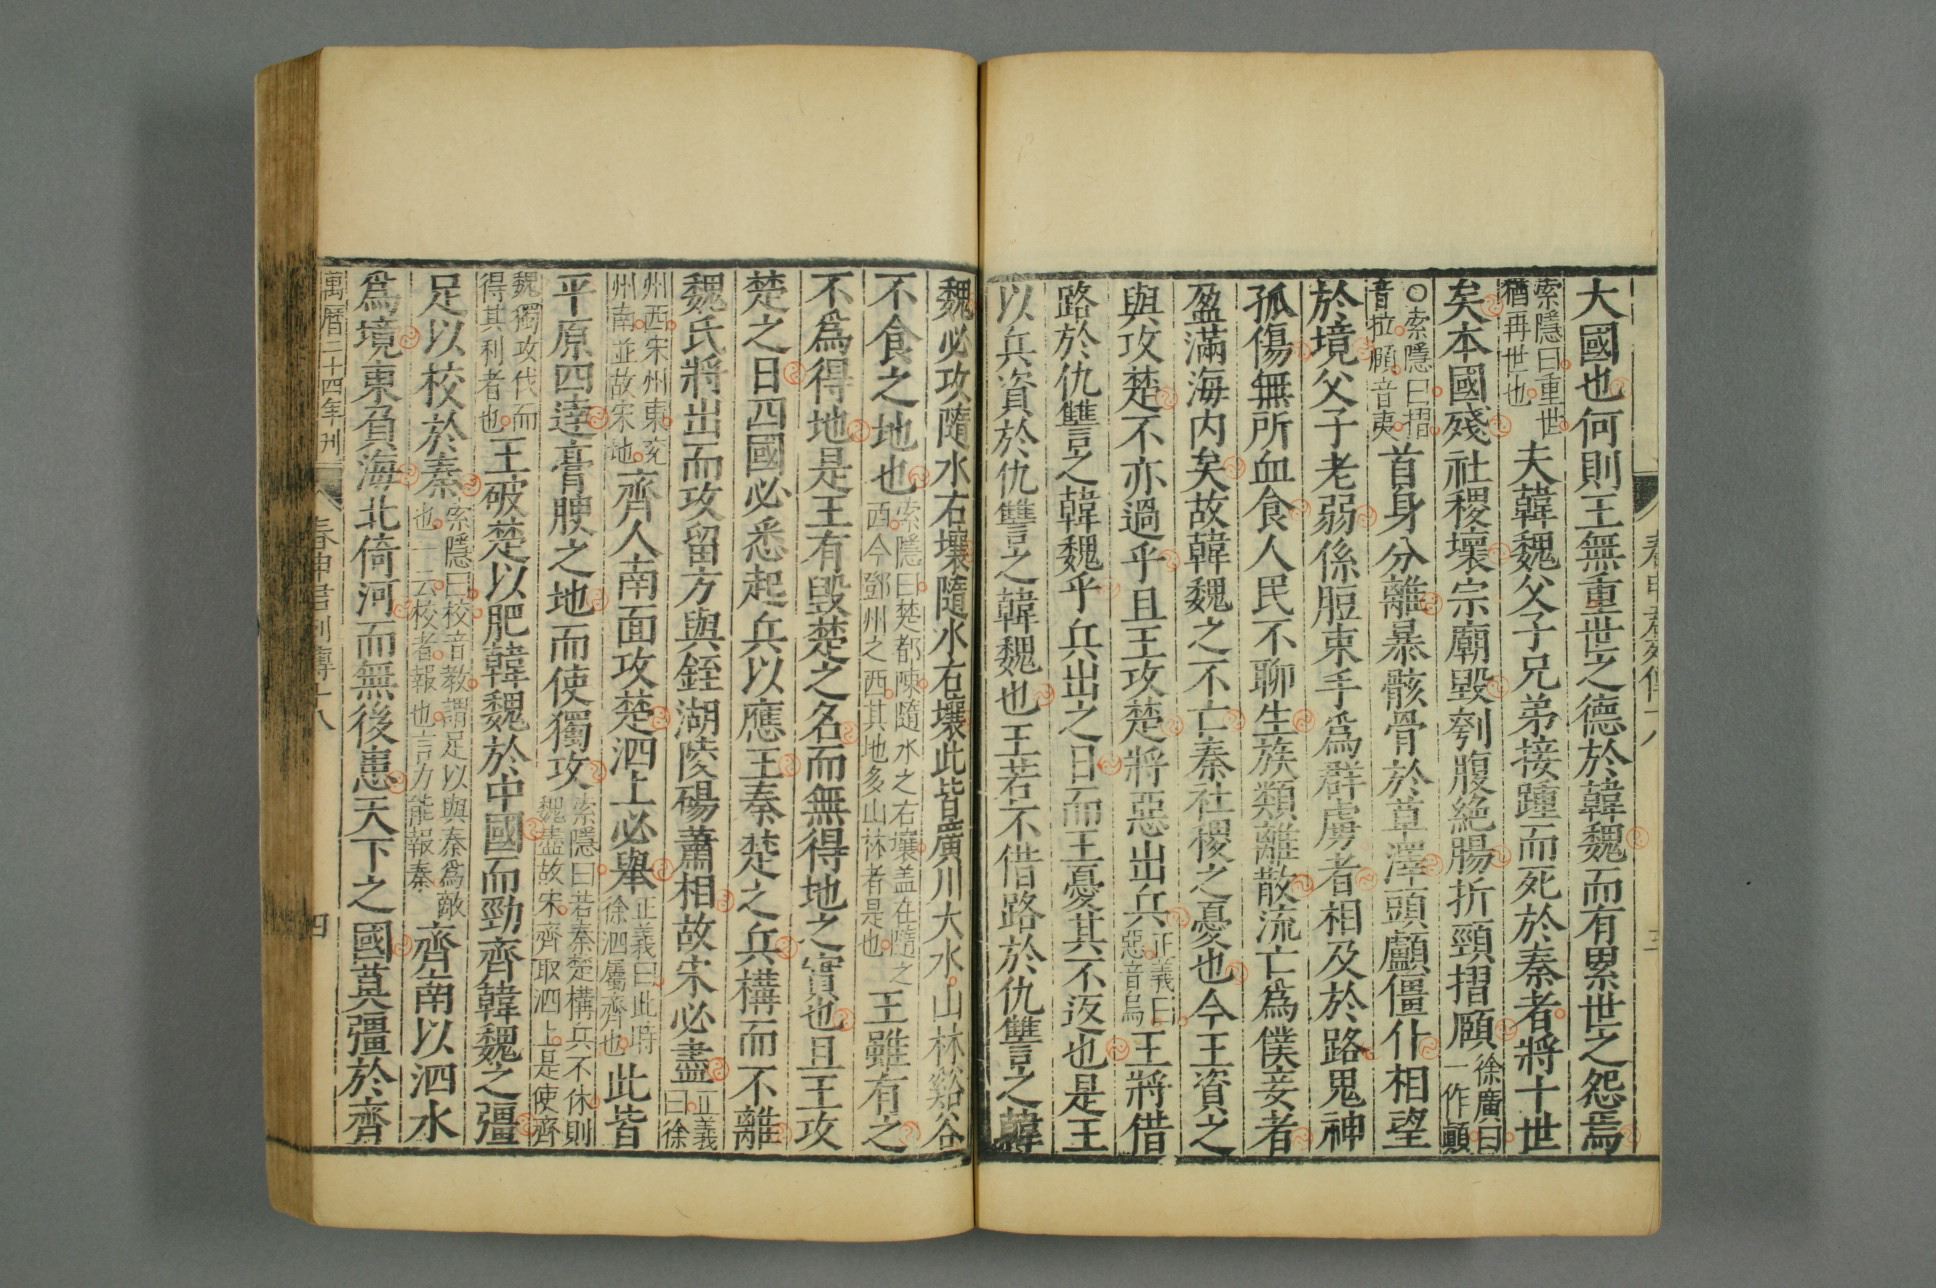 春申君列傳十八
三
大國也何則王無重世之德於韓魏而有累世之怨焉
索隱曰重世
猶再世也
夫韓魏父子兄弟接踵而死於秦者將十世
矣本國殘社稷壞宗廟毀刳腹絕腸折頸摺頤
徐廣曰
一作顚
○索隱曰摺
音拉頤音夷
首身分離暴骸骨於草澤頭顱僵仆相望
於境父子老弱係脰束手爲群虜者相及於路鬼神
孤傷無所血食人民不聊生族類離散流亡爲僕妾者
盈滿海內矣故韓魏之不亡秦社稷之憂也今王資之
與攻楚不亦過乎且王攻楚將惡出兵
正義曰
惡音烏
王將借
路於仇讐之韓魏乎兵出之日而王憂其不返也是王
以兵資於仇讐之韓魏也王若不借路於仇讐之韓
魏必攻隨水右壤隨水右壤此皆廣川大水山林谿谷
不食之地也
索隱曰楚都陳隨水之右壤盖在隨之
西今鄧州之西其地多山林者是也
王雖有之
不爲得地是王有毀楚之名而無得地之實也且王攻
楚之日四國必悉起兵以應王秦楚之兵構而不離
魏氏將出而攻留方與銍湖陵碭蕭相故宋必盡
正義
曰徐
州西宋州東兗
州南並故宋地
齊人南面攻楚泗上必舉
正義曰此時
徐泗屬齊也
此皆
平原四達膏腴之地而使獨攻
索隱曰若秦楚構兵不休則
魏盡故宋齊取泗上是使齊
魏獨攻伐而
得其利者也
王破楚以肥韓魏於中國而勁齊韓魏之彊
足以校於秦
索隱曰校音教謂足以與秦爲敵
也一云校者報也言力能報秦
齊南以泗水
爲境東負海北倚河而無後患天下之國莫彊於齊
萬曆二十四年刋
春申君列傳十八
四